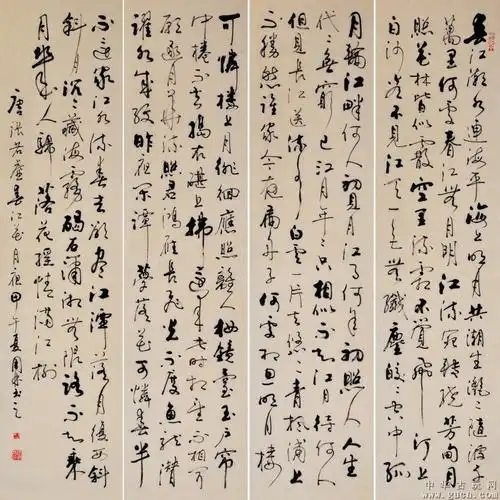 春江潮水連海平海上明月共潮生灩灩隨波千
萬里何處春江無月明江流宛轉繞芳甸月
照花林皆似霰空里流霜不覺飛汀上
白沙看不見江天一色無纖塵皎皎空中孤
月輪江畔何人初見月江月何年初照人人生
代代無窮已江月年年只相似不知江月待何人
但見長江送流水白雲一片去悠悠青楓浦上
不勝愁誰家今夜扁舟子何處相思明月樓
可憐樓上月徘徊應照離人妝鏡臺玉戶簾
中捲不去搗衣砧上拂還來此時相望不相聞
願逐月華流照君鴻雁長飛光不度魚龍潛
躍水成紋昨夜閑潭夢落花可憐春半
不還家江水流春去欲盡江潭落月復西斜
斜月沉沉藏海霧碣石瀟湘無限路不知乘
月幾人歸落花搖情滿江樹
唐張若虛春江花月夜甲午夏周書之
中华古玩网
www.gucn.com